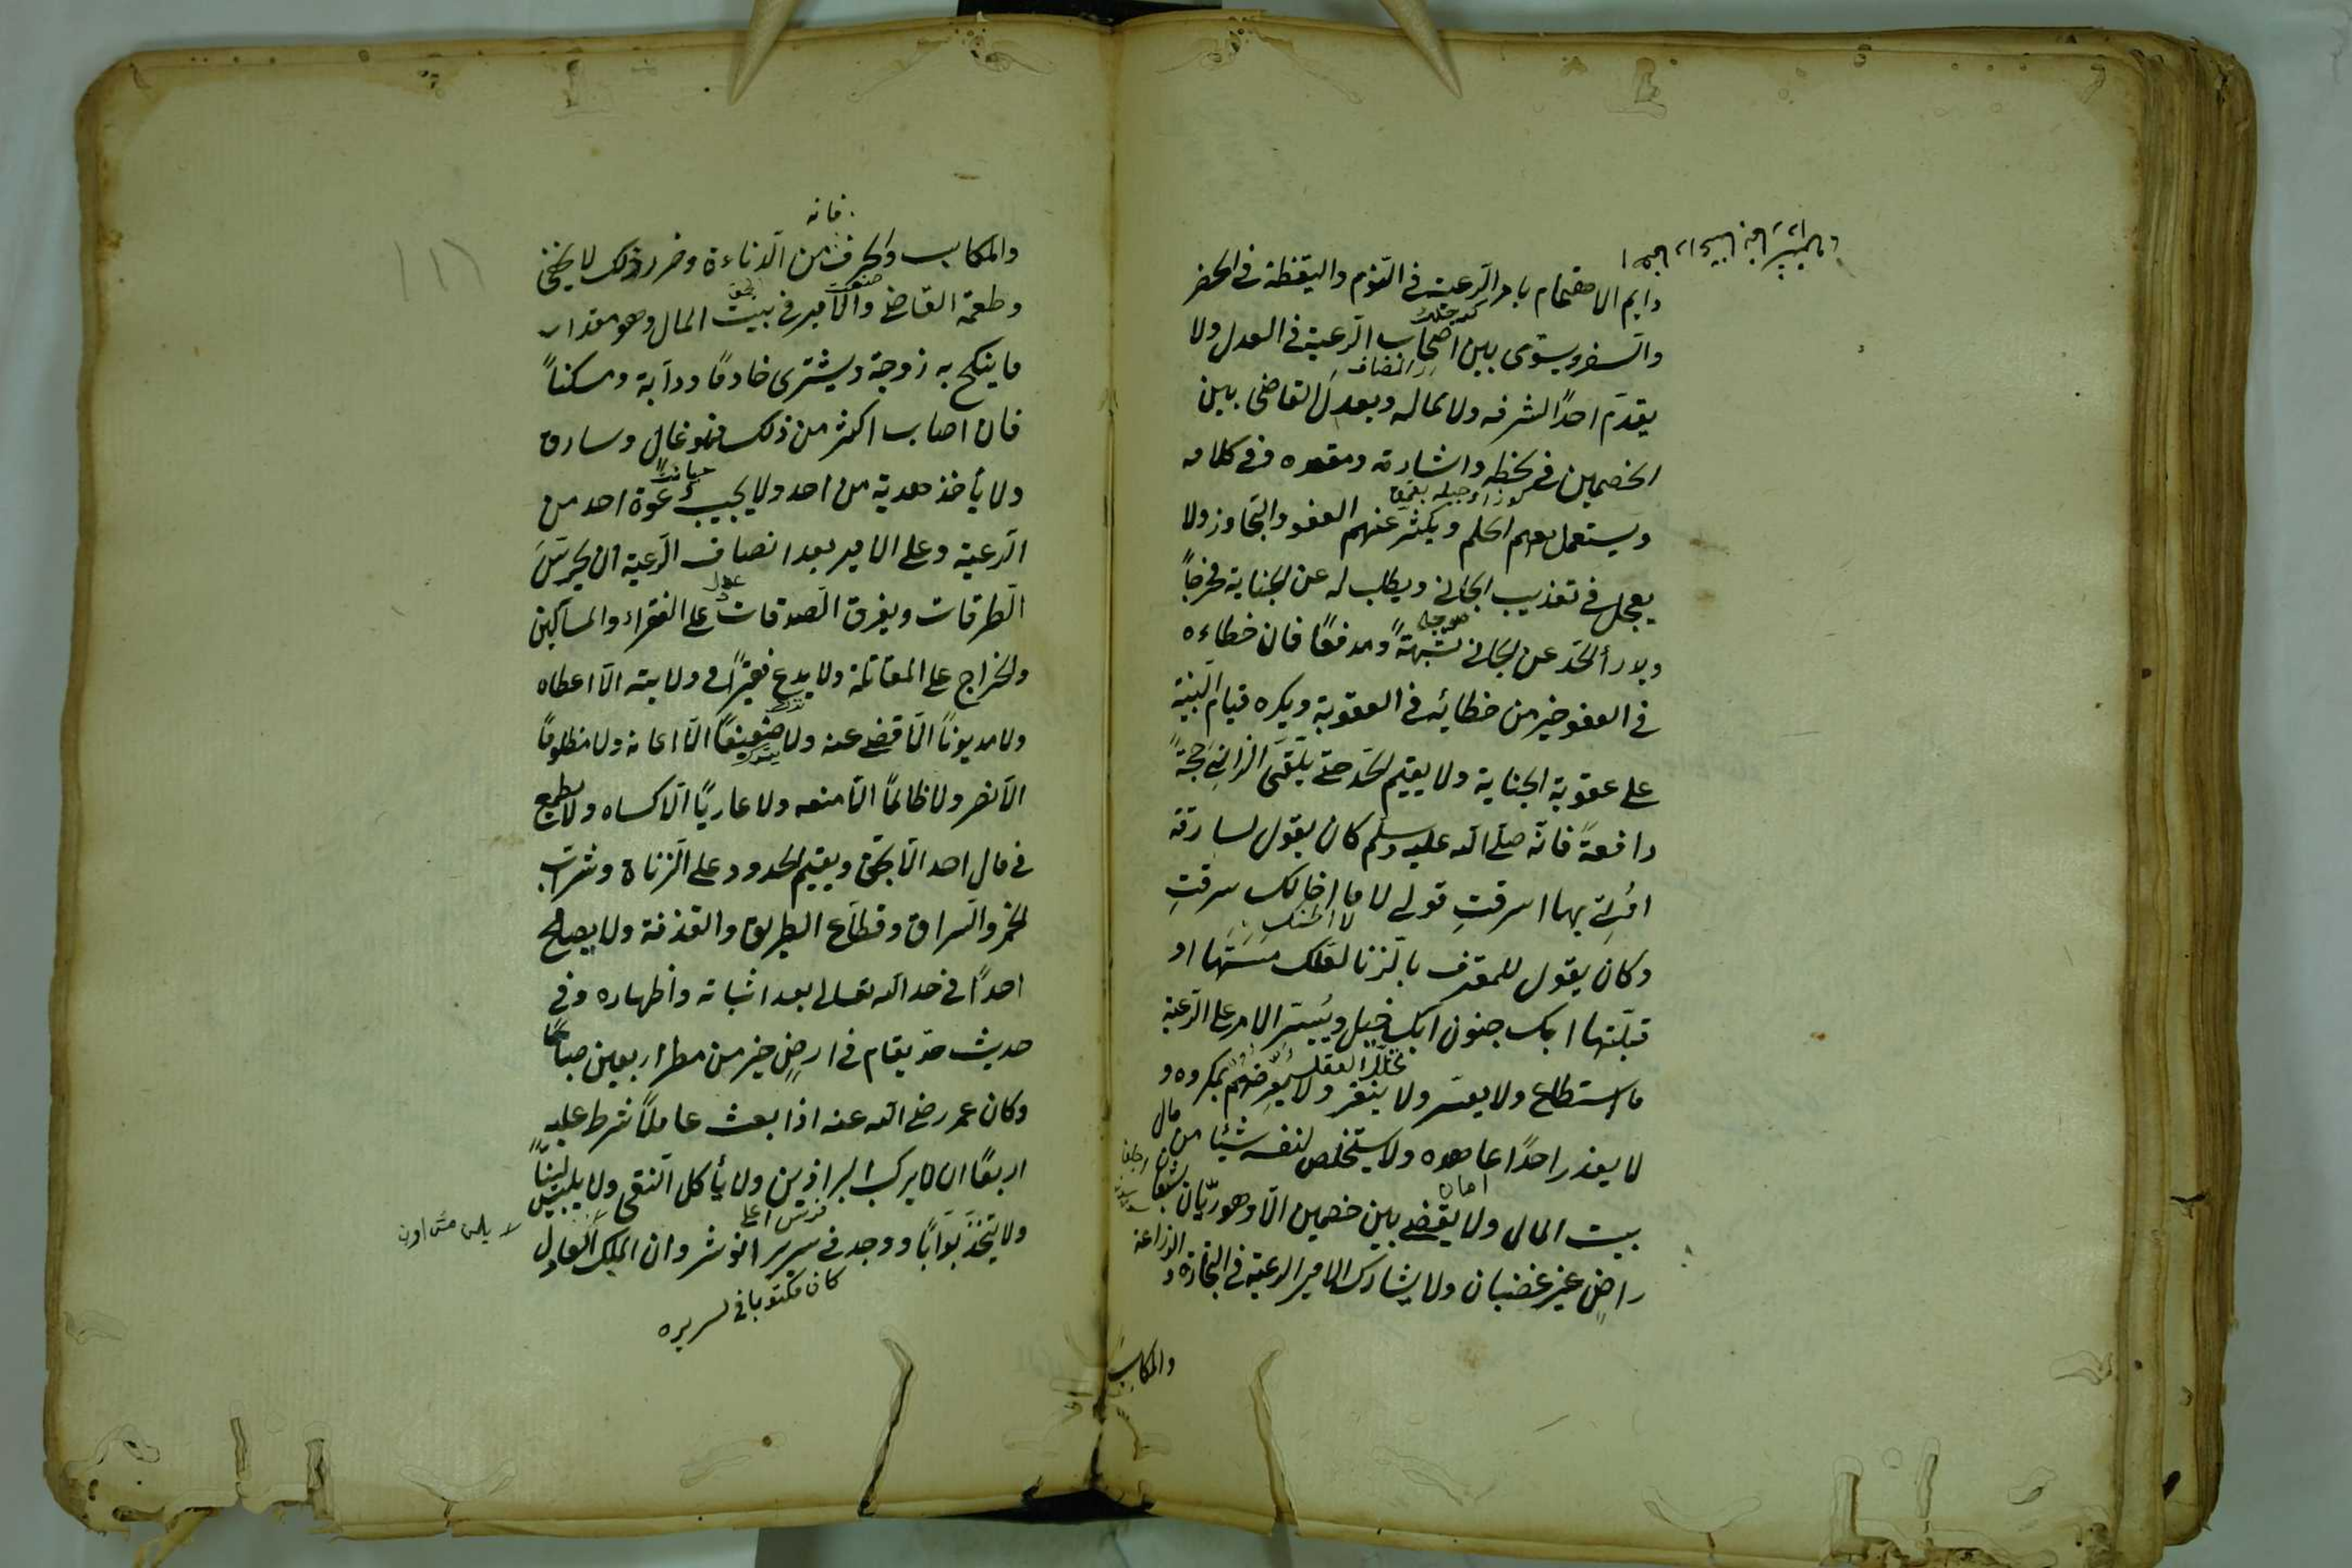 دايم الاهتمام بامر الرعية في النوم واليقظة في الحضر
والسفر ويستوى بين اصحاب الرعية في العدل ولا
يقدم احدًا لشرفه ولا لماله ويعدل القاضى بين
الخصمين في لحظه واشارته ومقعده وفي كلامه
ويستعمل معهم الحلم ويكثر عنهم العفو والتجاوز ولا
يعجل في تعذيب الجاني ويطلب له عن الجناية مخرجاً
ويدرأ الحد عن الجاني شبهةً ومدفعًا فان خطاءه
في العفو خير من خطائه في العقوبة ويكره قيام البينة
على عقوبة الجناية ولا يقيم الحد حتى يلقى الزاني حجةً
دافعةً فانه صلى الله عليه وسلم كان يقول لسارقة
اتى بها اسرقتِ قولي لا ما اخالك سرقتِ
لا اظنك
وكان يقول للمقرف بالزنا لعلك مسستها او
قبلتها ابك جنون ابك خبل وييسر الامر على الرعية
خلل العقل
ما استطاع ولا يعسر ولا ينفر ولا يعرضهم بمكروه و
لا يعذر احدًا عاهده ولا يستخلص لنفسه شيئا من مال
بيت المال ولا يقضى بين خصمين الا وهو ريان شبعان
راضٍ غير غضبان ولا يشارك الامير الرعية في التجارة و الزراعة
والمكاسب
فانه
والمكاسب والحرف من الدناءة وضرر ذلك لا يخفى
وطعمة القاضى والامير في بيت المال وهو مقدار
ما ينكح به زوجة ويشترى خادمًا ودابة ومسكناً
فان اصاب اكثر من ذلك فهو غال وسارق
ولا يأخذ هدية من احد ولا يجيب دعوة احد من
الرعية وعلى الامير بعد انصاف الرعية ان يحرس
الطرقات ويفرق الصدقات على الفقراء والمساكين
والخراج على المقاتلة ولا يدع فقيرًا في ولايته الا اعطاه
ولا مديونًا الا قضى عنه ولا ضعيفًا الا اعانه ولا مظلومًا
الا نصر ولا ظالمًا الا منعه ولا عاريًا الا كساه ولا يطمع
في مال احد الا بحق ويقيم الحدود على الزناة وشراب
الخمر والسراق وقطاع الطريق والقذفة ولا يصالح
احدًا في حد الله تعالى بعد اثباته واظهاره وفي
حديث حد يقام في ارضٍ خير من مطر اربعين صباحًا
وكان عمر رضى الله عنه اذا بعث عاملًا شرط عليه
اربعًا ان لا يركب البراذين ولا يأكل النقى ولا يلبس لينًا
ولا يتخذ بوّابًا ووجد في سرير انوشروان الملك العادل
كان مكتوبا في سريره